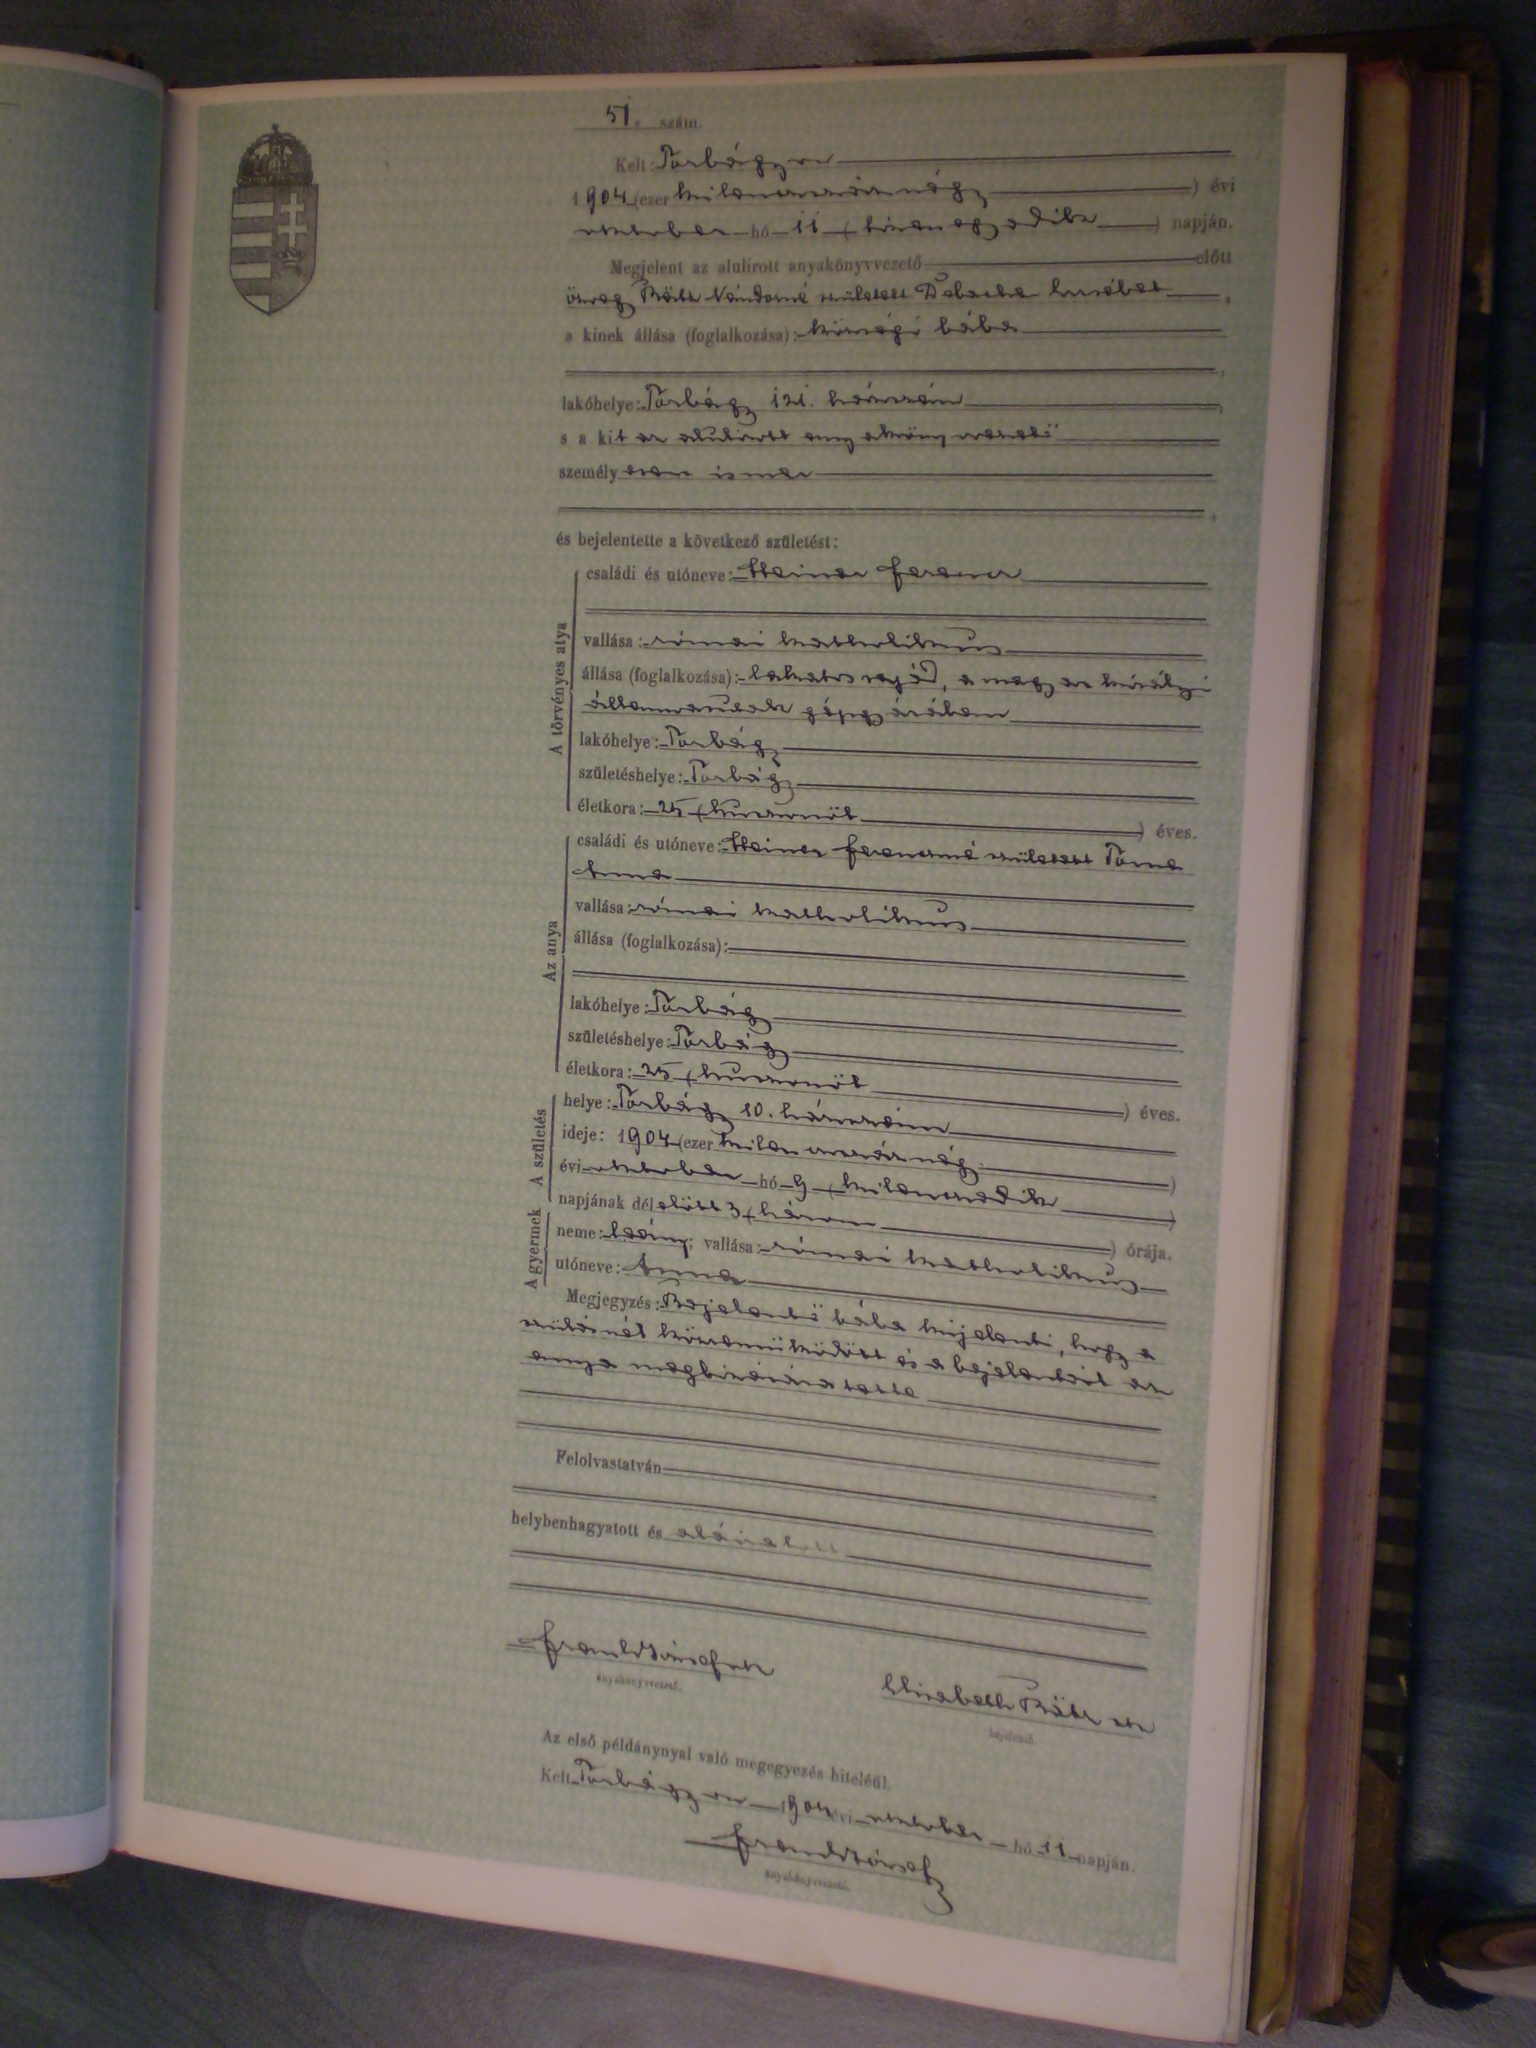 51. szám.
Kelt: Torbágyon
1904 (ezer kilenczszáznégy) évi
október hó 11 (tizenegyedik) napján.
Megjelent az alulirott anyakönyvvezető előtt
özvegy Rátz Nándorné született Erzsébet,
a kinek állása (foglalkozása): községi bába
lakóhelye: Torbágy 121. házszám
s a kit az alulirott anyakönyvvezető
személyesen ismer
és bejelentette a következő születést:
A törvényes atya
családi és utóneve: Steiner Ferencz
vallása: római katholikus
állása (foglalkozása): lakatos segéd, a magyar királyi
államvasutak gépgyárában
lakóhelye: Torbágy
születéshelye: Torbágy
életkora: 25 (huszonöt) éves.
Az anya
családi és utóneve: Steiner Ferenczné született
Anna
vallása: római katholikus
állása (foglalkozása):
lakóhelye: Torbágy
születéshelye: Torbágy
életkora: 25 (huszonöt) éves.
A születés
helye: Torbágy 10. házszám
ideje: 1904 (ezer kilenczszáznégy)
évi október hó 9 (kilenczedik)
napjának délelőtt 3 (három) órája.
A gyermek
neme: leány; vallása: római katholikus
utóneve: Anna
Megjegyzés: Bejelentő bába kijelenti, hogy a
szülésnél közreműködött és a bejelentést az
anya megbizására tette
Felolvastatván
helybenhagyatott és aláiratott
József
anyakönyvvezető.
Elisabeth Rátz
bejelentő.
Az első példánynyal való megegyezés hiteléül.
Kelt Torbágyon 1904 évi október hó 11 napján.
József
anyakönyvvezető.